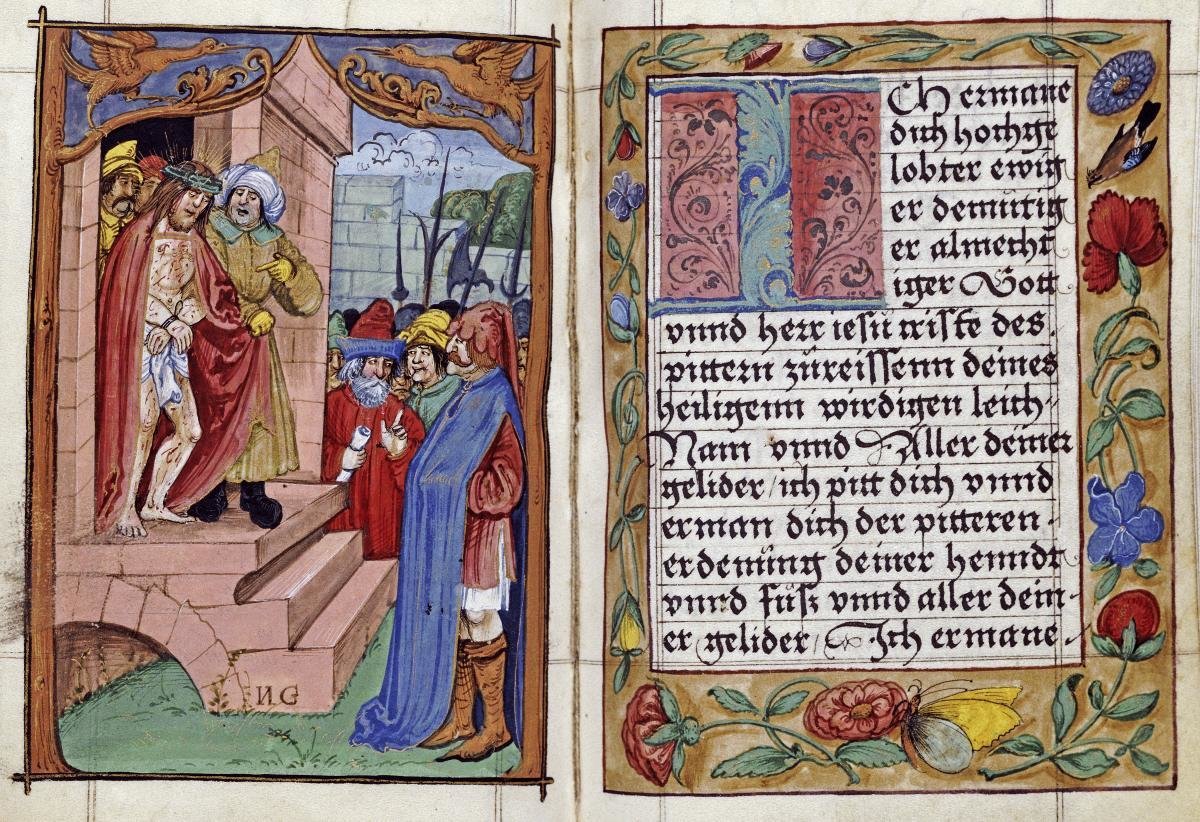 ИG
ICh ermane
dich hochge
lobter ewig
er demütig
er almecht
iger Gott
vnnd herr iesu criste des.
pittern zůreissenn deines
heiligenn wirdigen leich-
Nam vnnd Aller deiner
gelider / ich pitt dich vnnd
erman dich der pitteren-
erdenung deiner henndt
vnnd füß vnnd aller dein-
er gelider / Ich ermane